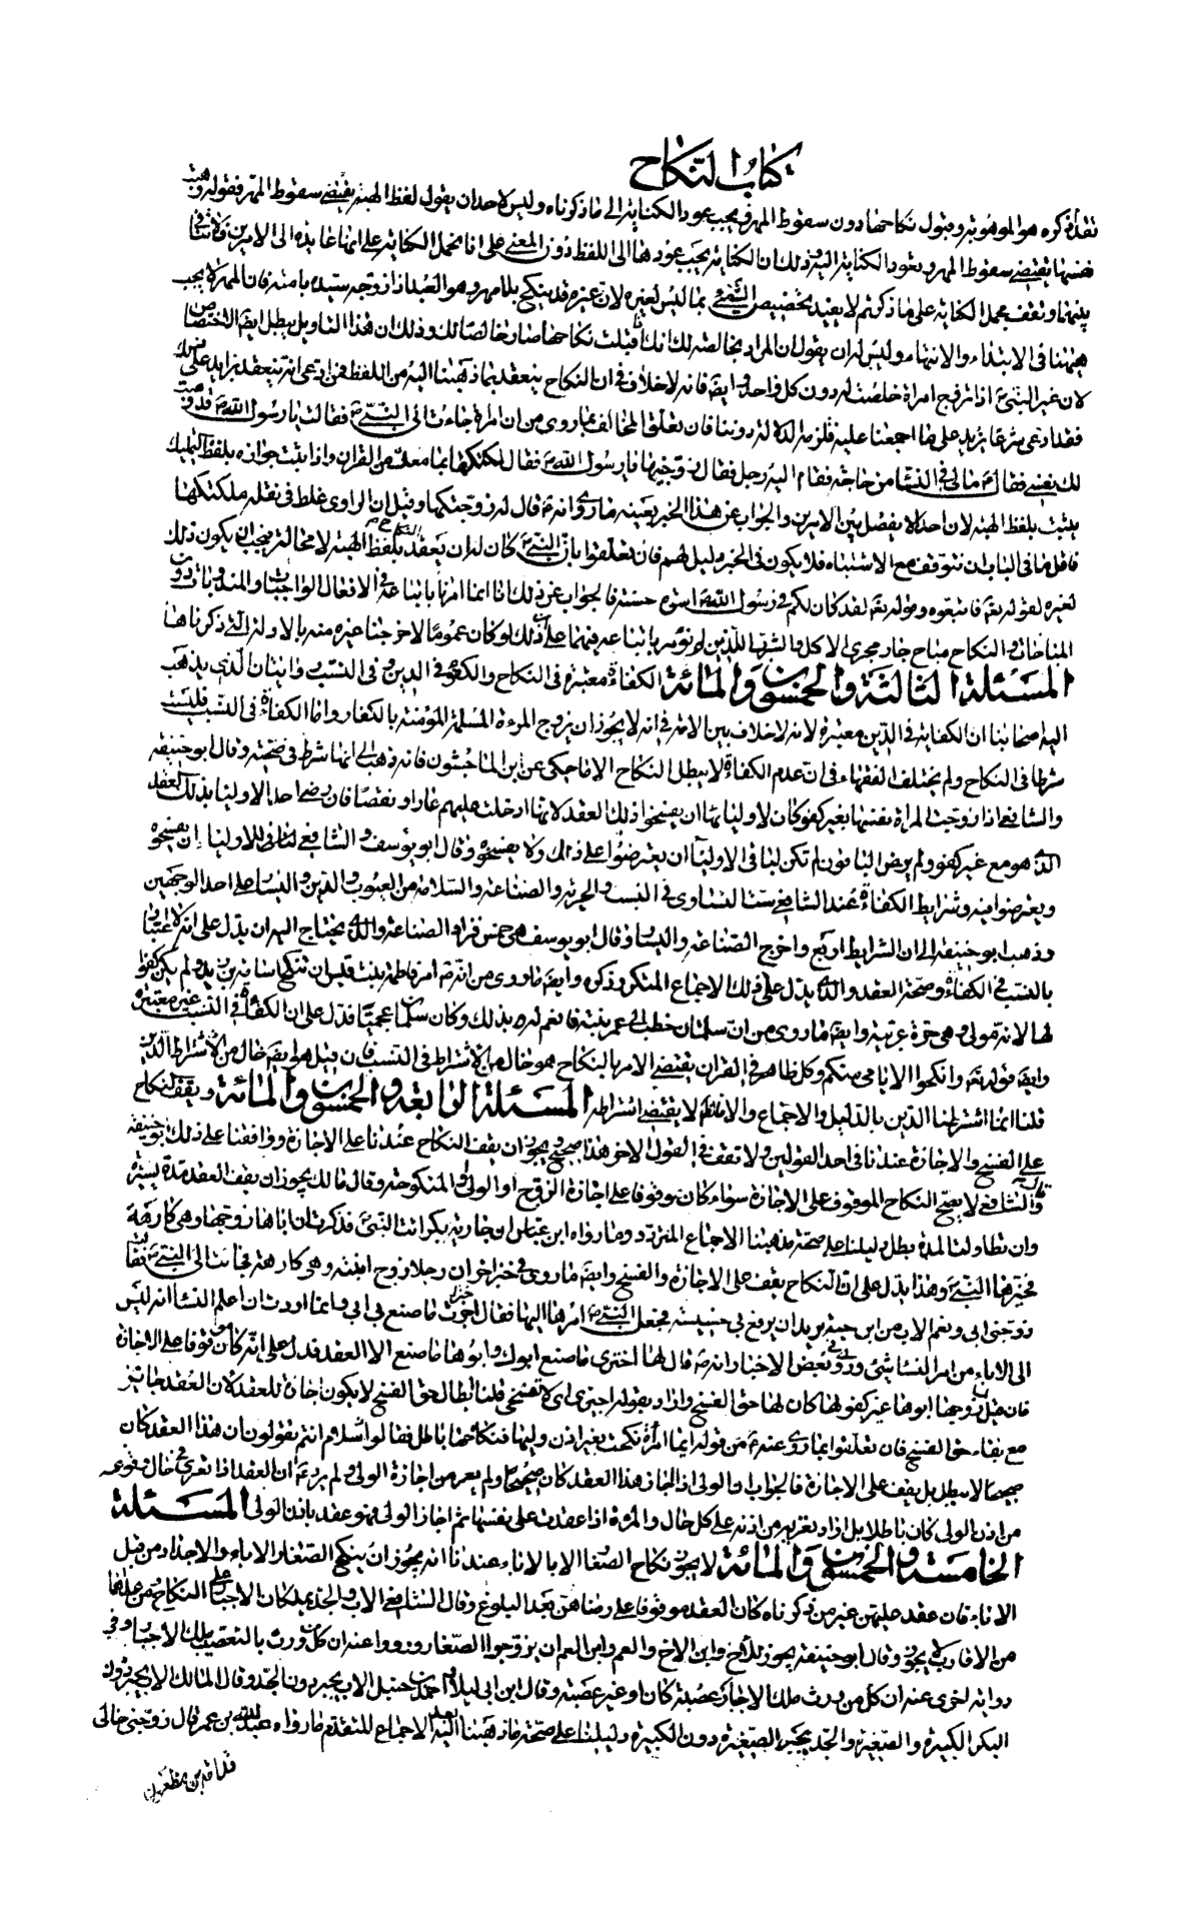 كتاب النكاح
تقدم ذكره هو الموهوبة وقبول نكاحها دون سقوط المهر فيجب عود الكناية إلى ما ذكرناه وليس لاحد ان يقول لفظ الهبة يقتضي سقوط المهر فقوله وهبت
نفسها يقتضي سقوط المهر ويعود الكناية اليه وذلك ان الكناية يجب عودها الى اللفظ دون المعنى على انا نحمل الكناية على انها عايدة الى الامرين ولا تنافي
بينهما ونقف بحمل الكناية على ما ذكرتم لا يفيد تخصيص النبي بما ليس لغيره لان غيره قد ينكح بلا مهر وهو العبد اذا زوجه سيده بامته فان المهر لا يجب
هيهنا في الابتداء والانتهاء وليس له ان يقول ان المراد بخالصة لك انك اذا قبلت نكاحها صار خالصا لك وذلك ان هذا التاويل يبطل ايضا الاختصاص
لان غير النبي اذا تزوج امراة خلصت له دون كل واحد وايضا فانه لا خلاف في ان النكاح ينعقد بما ذهبنا اليه من اللفظ فمن ادعى انه ينعقد بزايد على ذلك
فقد ادعى شرعا يزيد على ما اجمعنا عليه فلزمه الدلالة دوننا فان تعلق المخالف بما روي من ان امراة جاءت الى النبي فقالت يا رسول الله قد وهبت
لك نفسي فقال ما لي في النساء من حاجة فقام اليه رجل فقال زوجنيها يا رسول الله فقال ملكتكها بما معك من القران واذا ثبت جوازه بلفظ التمليك
يثبت بلفظ الهبة لان احدا لا يفصل بين الامرين والجواب عن هذا الخبر بعينه ما روي انه قال له زوجتكها وقيل ان الراوي غلط في نقله ملكتكها
فاقل ما في الباب ان نتوقف مع الاشتباه فلا يكون في الخبر دليل لهم فان تعلقوا بان النبي كان له ان يعقد النكاح بلفظ الهبة لا محالة فيجب ان يكون ذلك
لغيره لقوله تعالى فاتبعوه وقوله تعالى لقد كان لكم في رسول الله اسوة حسنة فالجواب عن ذلك انا انما امرنا باتباعه في الافعال الواجبات والمندوبات دون
المباحات والنكاح مباح جار مجرى الاكل والشرب اللذين لم نؤمر باتباعه فيهما على ان ذلك لو كان عموما لاخرجنا غيره منه بالادلة التي ذكرناها
المسئلة الثالثة والخمسون والمائة الكفاءة معتبرة في النكاح والكفو في الدين وفي النسب روايتان الذي يذهب
اليه اصحابنا ان الكفاءة في الدين معتبرة لانه لا خلاف بين الامة في انه لا يجوز ان يزوج المرءة المسلمة المؤمنة بالكفار واما الكفاءة في النسب فليست
شرطا في النكاح ولم يختلف الفقهاء في ان عدم الكفاءة لا يبطل النكاح الا ما حكي عن ابن الماجشون فانه ذهب الى انها شرط في صحته وقال ابو حنيفة
والشافعي اذا زوجت المراة نفسها بغير كفو كان لاوليائها ان يفسخوا ذلك العقد لانها ادخلت عليهم عارا ونقصا فان رضي احد الاولياء بذلك العقد
الذي هو مع غير كفو ولم يرض الباقون لم تكن لباقي الاولياء ان يعترضوا على ذلك ولا يفسخوه وقال ابو يوسف والشافعي لباقي الاولياء ان يفسخوه
ويعترضوا فيه وشرايط الكفاءة عند الشافعي ست التساوي في النسب والحرية والصناعة والسلامة من العيوب والدين واليسار على احد الوجهين
وذهب ابو حنيفة الى ان الشرايط اربع واخرج الصناعة واليسار وقال ابو يوسف هي خمس فزاد الصناعة والذي يحتاج اليه ان يدل على انه لا اعتبار
بالنسب في الكفاءة وصحة العقد والذي يدل على ذلك الاجماع المتكرر ذكره وايضا ما روي من انه امر فاطمة بنت قيس ان تنكح اسامة بن زيد ولم يكن كفوا
لها لانه مولى وهي حرة عربية وايضا ما روي من ان سلمان خطب الى عمر بنته فانعم له بذلك وكان سلمان عجميا فدل على ان الكفاءة في النسب غير معتبرة
وايضا قوله تعالى وانكحوا الايامى منكم وكل ظاهر في القران يقتضي الامر بالنكاح هو خال من الاشتراط في النسب فان قيل هو ايضا خال من الاشتراط الدين
قلنا انما اشترطنا الدين بالدليل والاجماع والا فالظاهر لا يقتضي اشتراطه المسئلة الرابعة والخمسون والمائة ويقف النكاح
على الفسخ والاجازة عندنا في احد القولين ولا تقف في القول الاخر هذا صحيح ويجوز ان يقف النكاح عندنا على الاجازة ووافقنا على ذلك ابو حنيفة
وقال الشافعي لا يصح النكاح الموقوف على الاجازة سواء كان موقوفا على اجازة الزوج او الولي او المنكوحة وقال مالك يجوز ان يقف العقد مدة يسيرة
وان تطاولت المدة بطل دليلنا على صحة مذهبنا الاجماع المتردد وما رواه ابن عباس ان جارية بكرا اتت النبي فذكرت ان اباها زوجها وهي كارهة
فخيرها النبي وهذا يدل على ان النكاح يقف على الاجازة والفسخ وايضا ما روي في خبر اخر ان رجلا زوج ابنته وهي كارهة فجاءت الى النبي فقالت
زوجني ابي ونعم الاب من ابن اخيه يريد ان يرفع بي خسيسته فجعل النبي امرها اليها فقالت اجزت ما صنع بي ابي وانما اردت ان اعلم النساء انه ليس
الى الاباء من امر النساء شيء وروي في بعض الاخبار انه قال لها اختري ما صنع ابوك وابوها ما صنع الا العقد فدل على انه كان موقوفا على الاجازة
فان قيل زوجها ابوها غير كفو لها كان لها حق الفسخ واراد بقوله اجيزي اي لا تفسخي قلنا ابطال حق الفسخ لا يكون اجازة للعقد لان العقد جائز
مع بقاء حق الفسخ فان تعلقوا بما روي عنه من قوله ايما امراة نكحت بغير اذن وليها فنكاحها باطل فقالوا سلام انتم تقولون ان هذا العقد كان
صحيحا لا يبطل بل يقف على الاجازة فالجواب ان الولي اذا اجاز هذا العقد كان صحيحا ولم يعر من اجازة الولي ولم يرد ان العقد اذا تعرى في حال وقوعه
من اذن الولي كان باطلا بل اراد تعريه من اذنه على كل حال والمرءة اذا عقدت على نفسها ثم اجاز الولي فهو عقد باذن الولي المسئلة
الخامسة والخمسون والمائة لا يجوز نكاح الصغار الا بالاباء عندنا انه يجوز ان ينكح الصغار الاباء والاجداد من قبل
الاباء فان عقد عليهن غير من ذكرناه كان العقد موقوفا على رضاهن بعد البلوغ وقال الشافعي الاب والجد يملكان الاجبار على النكاح ومن عداهما
من الاقارب لا يجوز وقال ابو حنيفة يجوز للاخ وابن الاخ والعم وابن العم ان يزوجوا الصغار ورووا عنه ان كل من ورث بالتعصيب يملك الاجبار وفي
رواية اخرى عنه ان كل من ورث ملك الاجبار عصبة كان او غير عصبة وقال ابن ابي ليلى واحمد بن حنبل الاب يجبر دون الجد وقال المالك الاب يجبر دون
البكر الكبيرة والصغيرة والجد يجبر الصغيرة دون الكبيرة دليلنا على صحة ما ذهبنا اليه بعد الاجماع المتقدم ما رواه عبد الله بن عمر قال زوجني خالي
قدامة بن مظعون